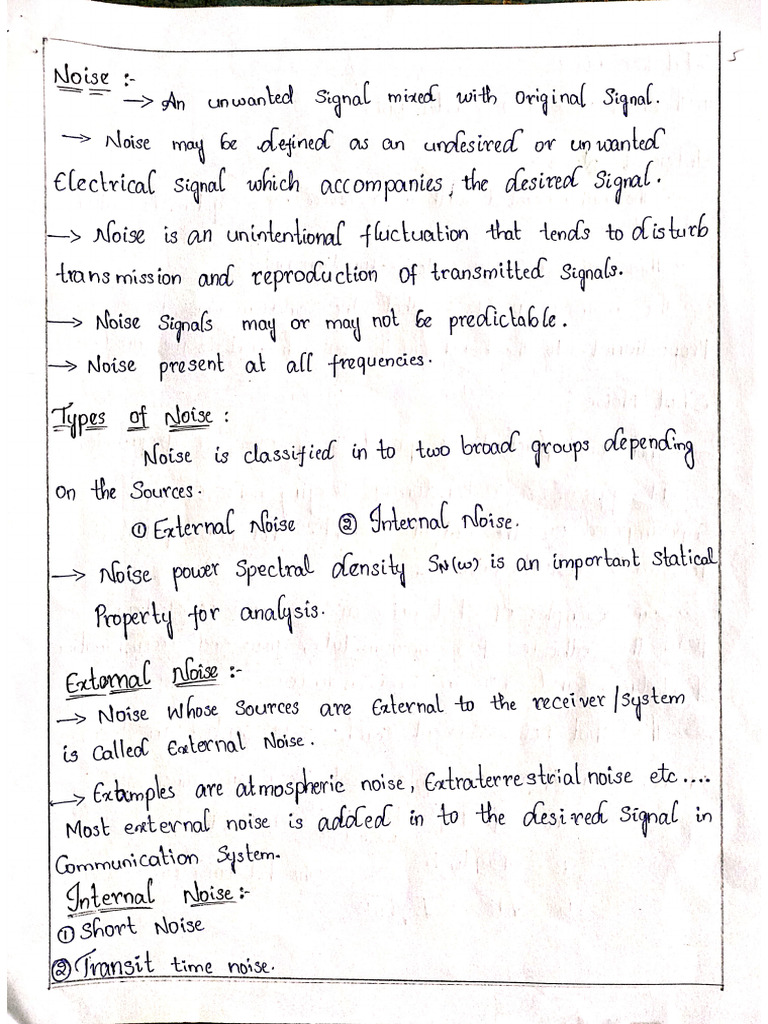 5
Noise :-
→ An unwanted Signal mixed with Original Signal.
→ Noise may be defined as an undesired or unwanted
Electrical Signal which accompanies, the desired Signal.
→ Noise is an unintentional fluctuation that tends to disturb
transmission and reproduction of transmitted Signals.
→ Noise Signals may or may not be predictable.
→ Noise present at all frequencies.
Types of Noise :
Noise is classified in to two broad groups depending
on the Sources.
① External Noise ② Internal Noise.
→ Noise power Spectral density SN(ω) is an important Statical
Property for analysis.
External Noise :-
→ Noise Whose Sources are External to the receiver/System
is Called External Noise.
→ Examples are atmospheric noise, Extraterrestrial noise etc....
Most external noise is added in to the desired Signal in
Communication System.
Internal Noise :-
① Short Noise
② Transit time noise.